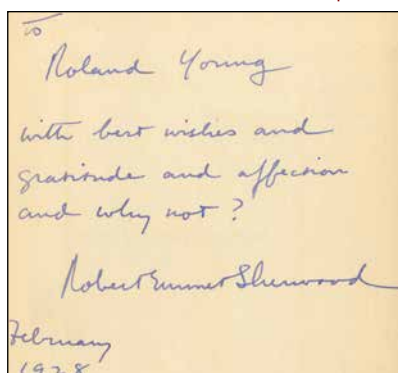 To
Roland Young
with best wishes and
gratitude and affection
and why not?
Robert Emmet Sherwood
February
1928